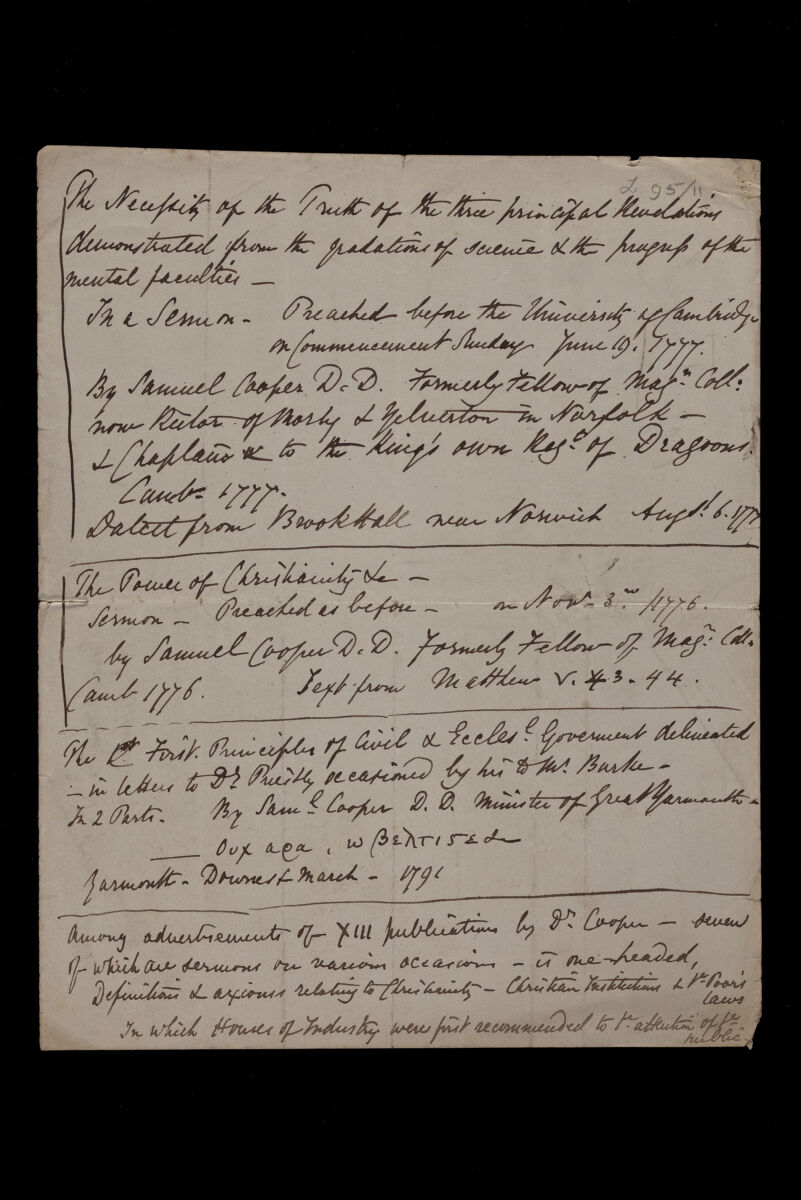 L 95/11
The Necessity of the Truth of the three principal Revelations
demonstrated from the gradations of science & the progress of the
mental faculties —
In a Sermon - Preached before the University of Cambridge
on Commencement Sunday June 19. 1777.
By Samuel Cooper D.D. Formerly Fellow of Magn Coll:
now Rector of Morly & Yelverton in Norfolk —
& Chaplain to the King's own Regt of Dragoons.
Camb- 1777-
Dated from Brook Hall near Norwich Augst 6. 1777
The Power of Christianity &c —
Sermon — Preached as before — on Novr 3rd 1776.
by Samuel Cooper D.D. Formerly Fellow of Magn Coll.
Camb 1776. Text from Matthew V. 43. 44.
The First Principles of Civil & Eccles.l Goverment delineated
— in letters to Dr Priestly occasioned by his to Mr Burke —
In 2 Parts. By Saml Cooper D.D. Minister of Great Yarmouth —
— Ουχ αρα, ω βελτισε &c
Yarmouth - Downes & March - 1791
Among advertisements of XIII publications by Dr Cooper — seven
of which are sermons on various occasions — is one headed,
Definitions & axioms relating to Christianity — Christian Institutions & ye Poor's
Laws
In which Houses of Industry were first recommended to ye attention of ye
public.